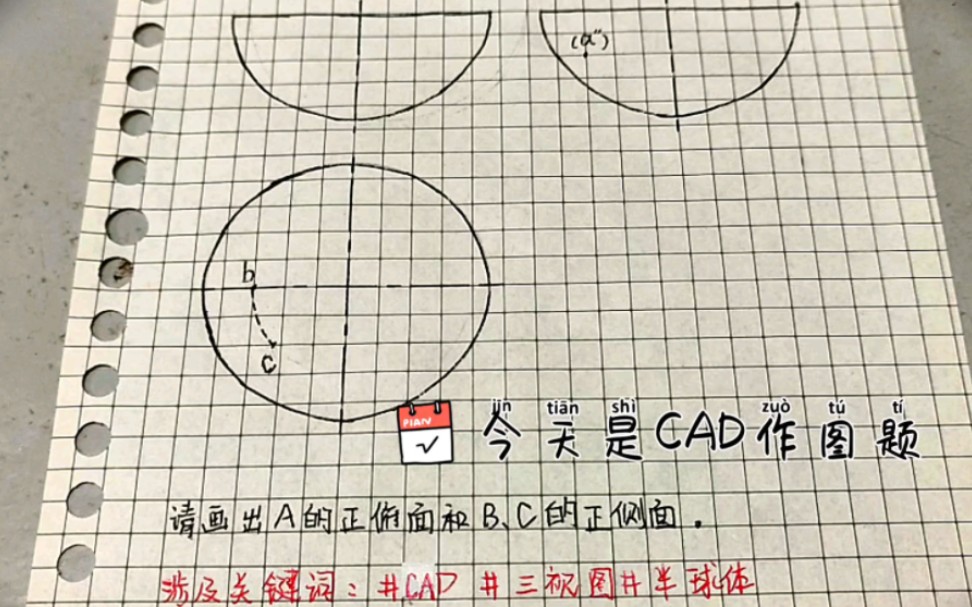 (a")
b
c
PIAN
jīn tiān shì zuò tú tí
今天是CAD作图题
请画出A的正俯面和B、C的正侧面.
涉及关键词:#CAD #三视图#半球体